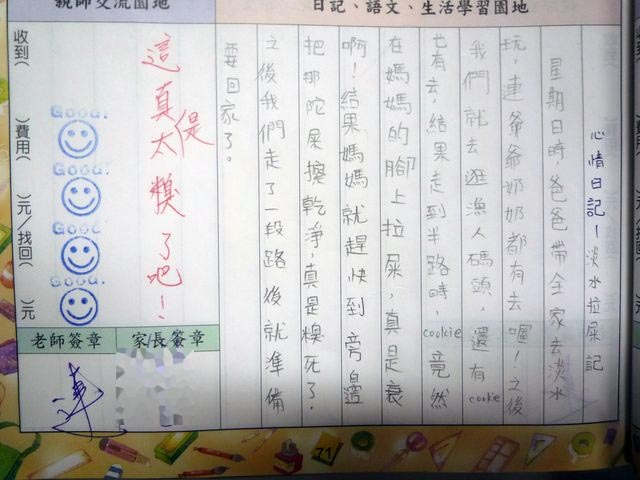 日記、語文、生活學習園地
心情日記!淡水拉屎記
星期日時,爸爸帶全家去淡水
玩,連爺爺奶奶都有去喔!之後
我們就去逛漁人碼頭,還有cookie
也有去,結果走到半路時,cookie竟然
在媽媽的腳上拉屎,真是衰
啊!結果媽媽就趕快到旁邊
把那陀屎擦乾淨,真是糗死了。
之後我們走了一段路後就準備
要回家了。
親師交流園地
這真是太糗了吧!
Good!
Good!
Good!
Good!
收到( )費用( )元/找回( )元
家長簽章
老師簽章
71